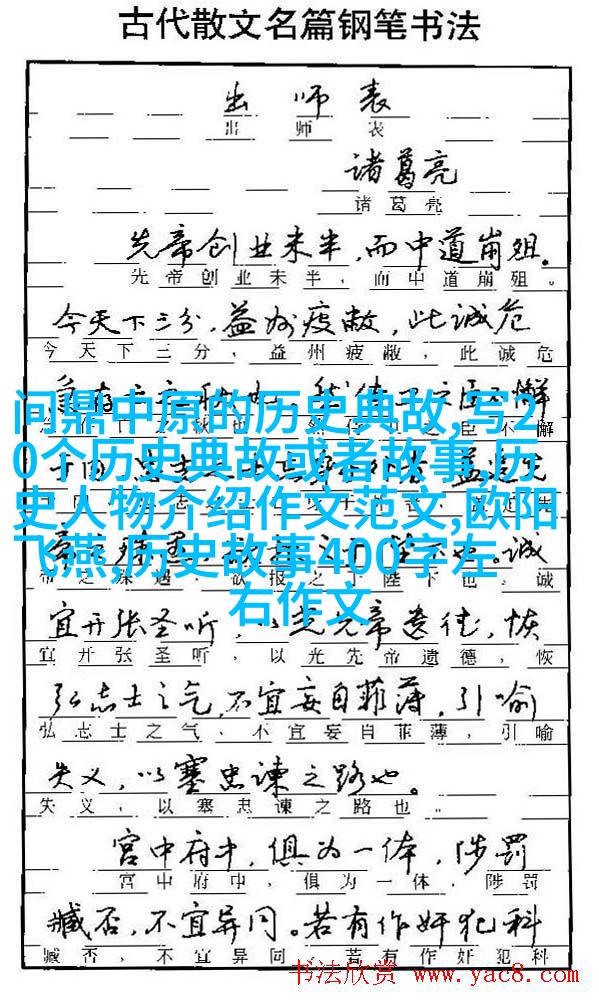 古代散文名篇钢笔书法
出师表
出师表
诸葛亮
诸葛亮
先帝创业未半,而中道崩殂。
先帝创业未半,而中道崩殂。
今天下三分,益州疲敝,此诚危
今天下三分,益州疲敝,此诚危
不解
不解
问鼎中原的历史典故,写2
0个历史典故或者故事,历
史人物介绍作文范文,欧阳
飞燕,历史故事400字左
右作文
诚
诚
宜开张圣听,以光先帝遗德,恢
宜开张圣听,以光先帝遗德,恢
弘志士之气,不宜妄自菲薄,引喻
弘志士之气,不宜妄自菲薄,引喻
失义,以塞忠谏之路也。
失义,以塞忠谏之路也。
宫中府中,俱为一体,陟罚
宫中府中,俱为一体,陟罚
臧否,不宜异同。若有作奸犯科
臧否,不宜异同。若有作奸犯科
书法欣赏 www.yac8.com